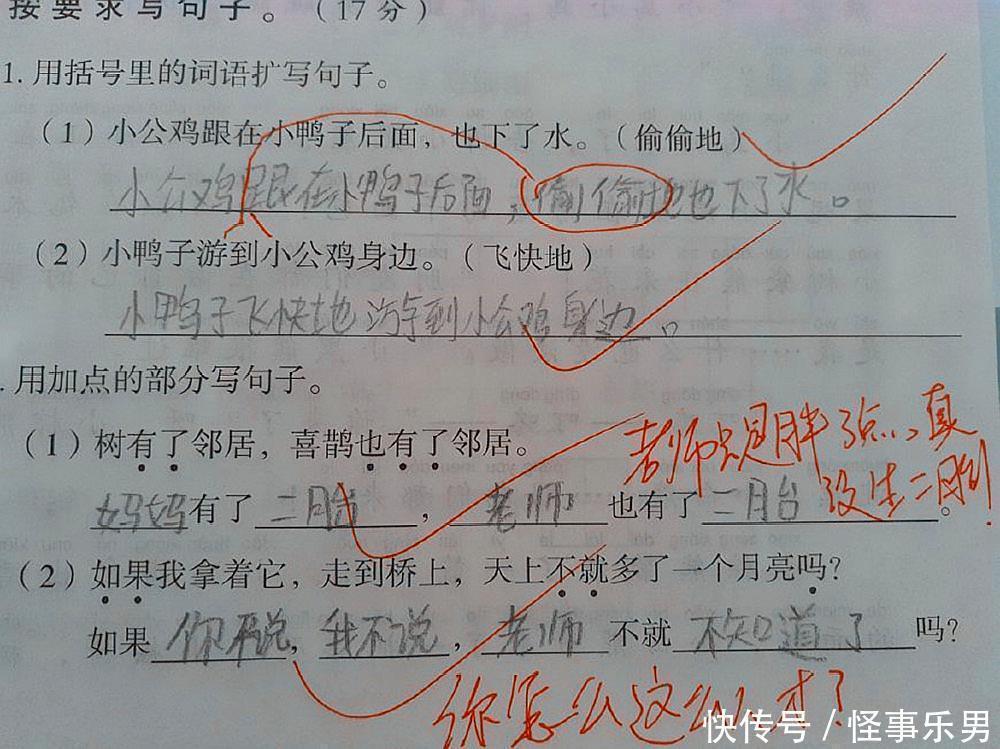 按要求写句子。(17分)
1. 用括号里的词语扩写句子。
(1)小公鸡跟在小鸭子后面,也下了水。(偷偷地)
小公鸡跟在小鸭子后面,偷偷地也下了水。
(2)小鸭子游到小公鸡身边。(飞快地)
小鸭子飞快地游到小公鸡身边。
. 用加点的部分写句子。
(1)树有了邻居,喜鹊也有了邻居。
老师只是胖了点,真
没生二胎!
妈妈有了二月台,老师也有了二月台。
(2)如果我拿着它,走到桥上,天上不就多了一个月亮吗?
如果你不说,我不说,老师不就不知道了吗?
你怎么这么有才?
快传号/怪事乐男